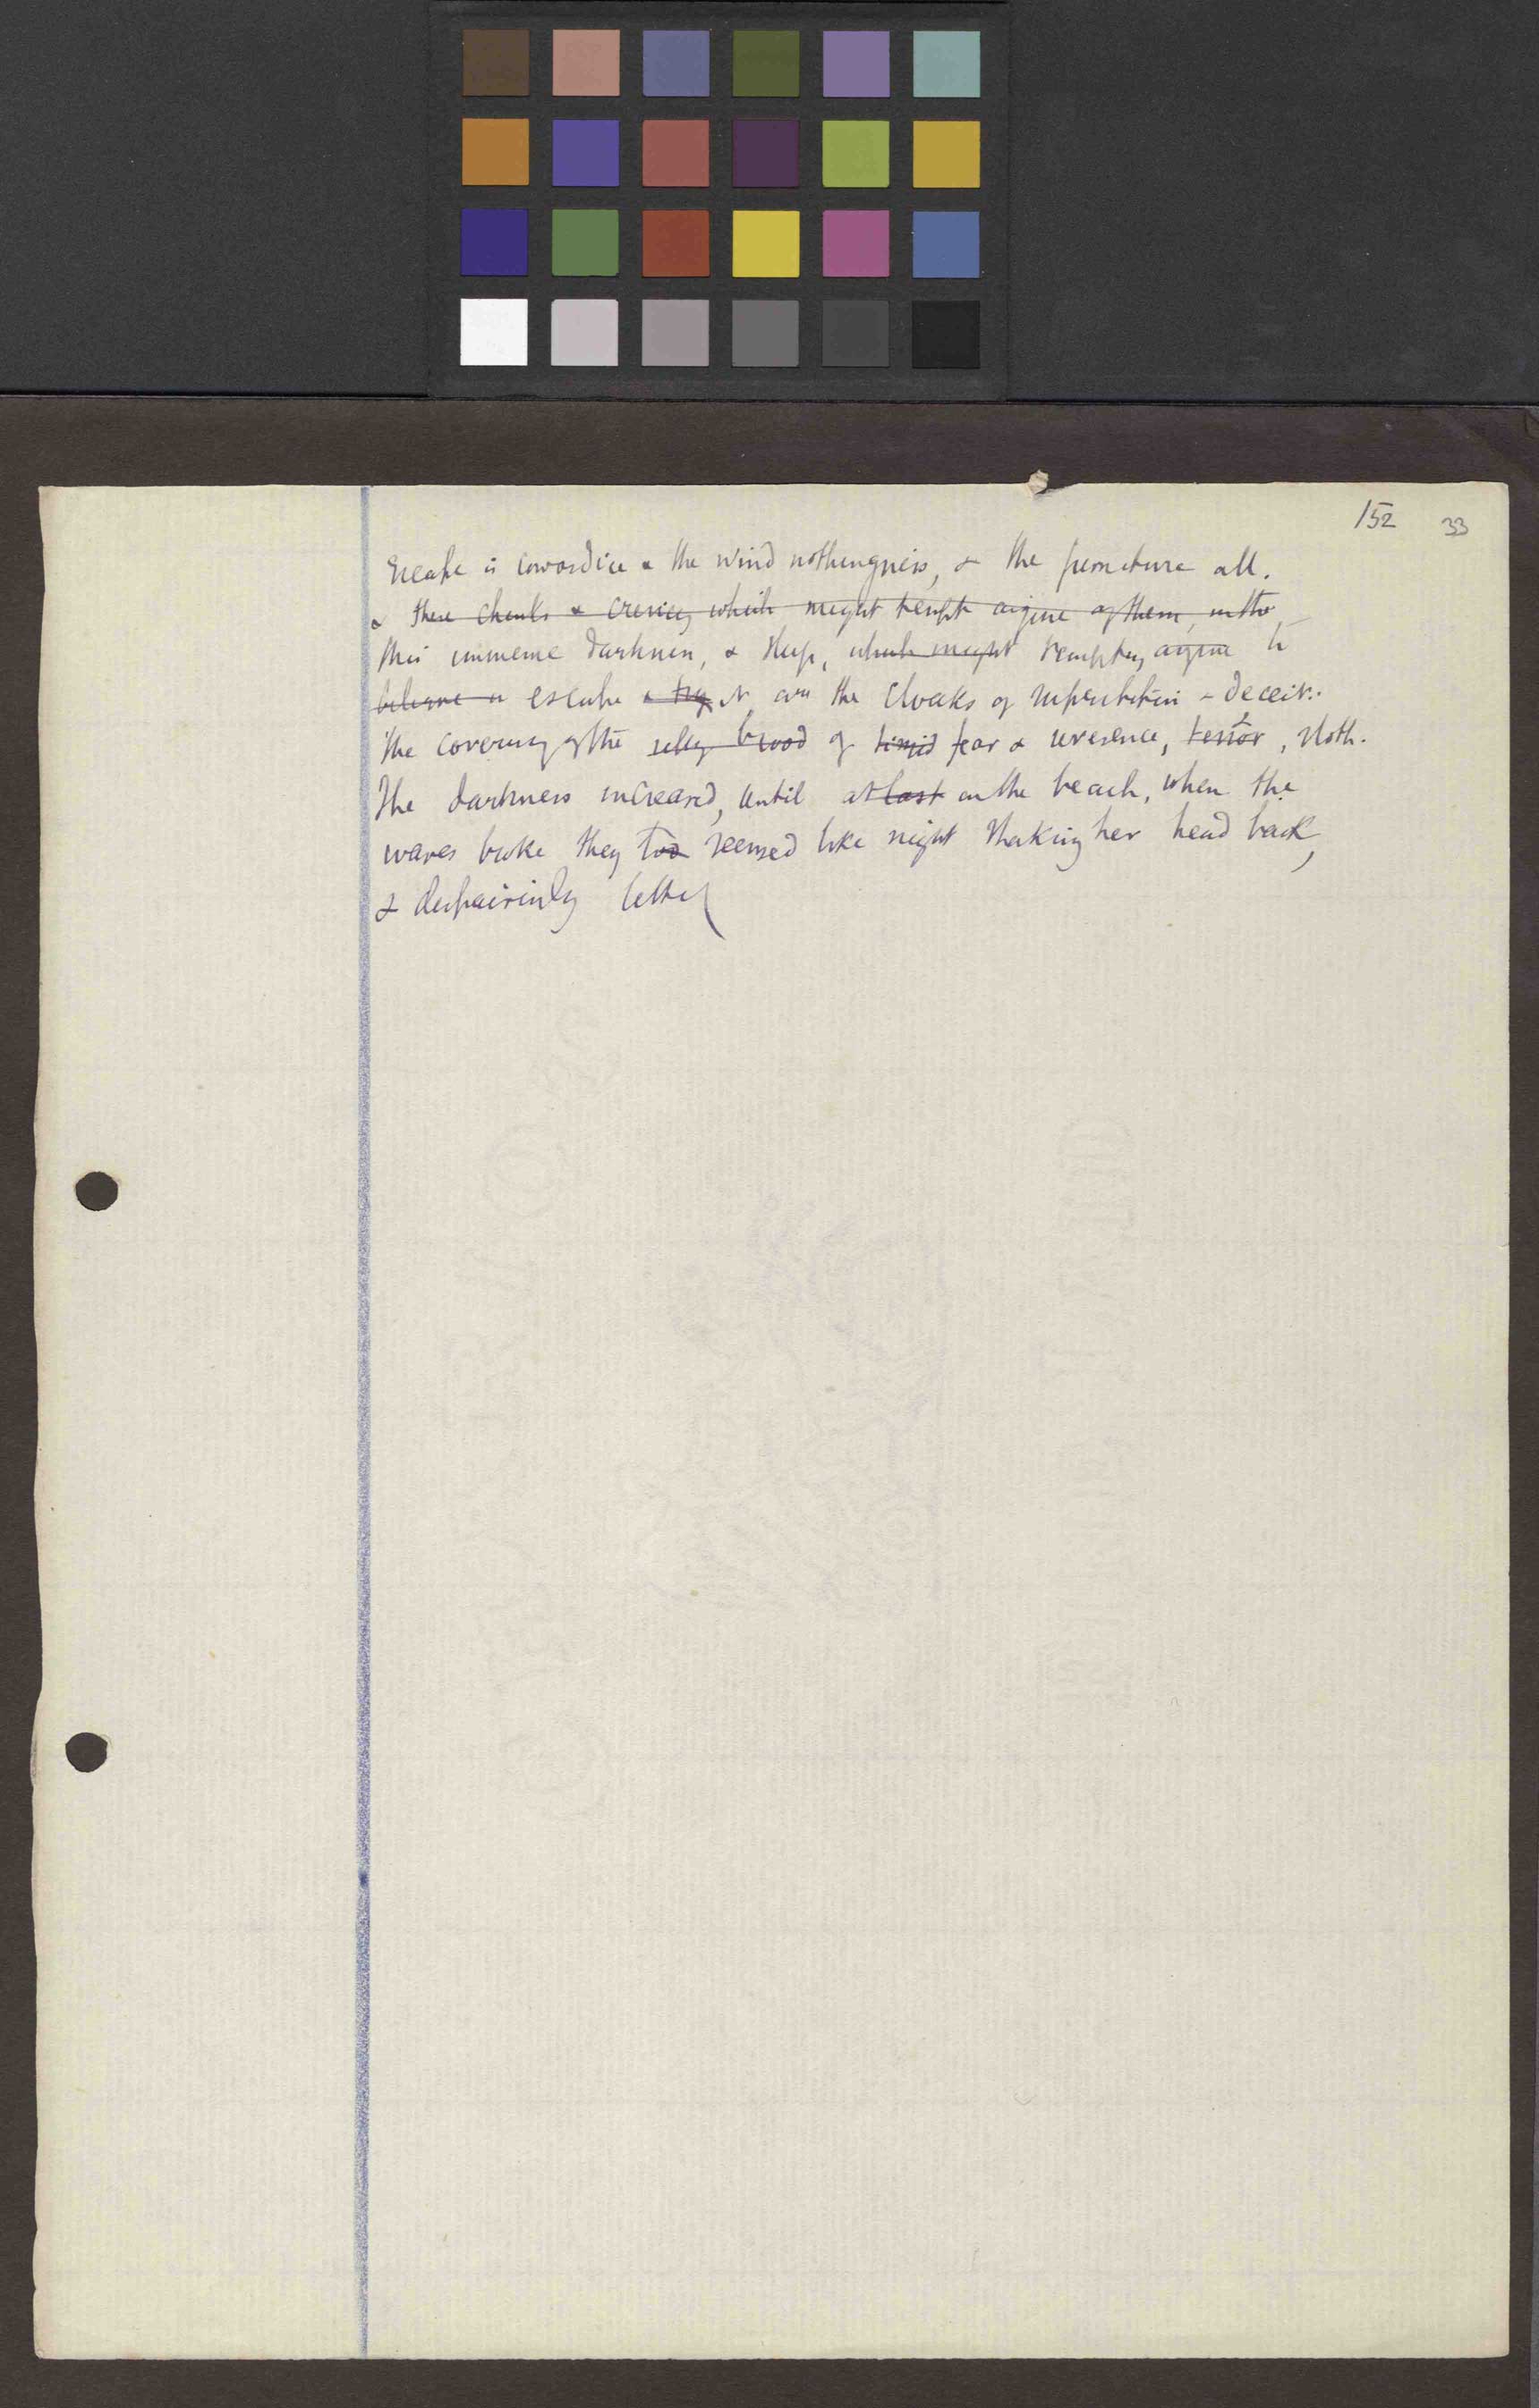 152 33
Escape is cowardice & the wind nothingness, & the furniture all.
& these chinks & crevices which might tempt any one of them, into
this immense darkness, & sleep, which might tempting anyone to
believe in escape & try it are the cloaks of superstition & deceit.
The covering of the silly brood of timid fear & reverence, terror, sloth.
The darkness increased, until at last on the beach, when the
waves broke they too seemed like night shaking her head back,
& despairingly letting